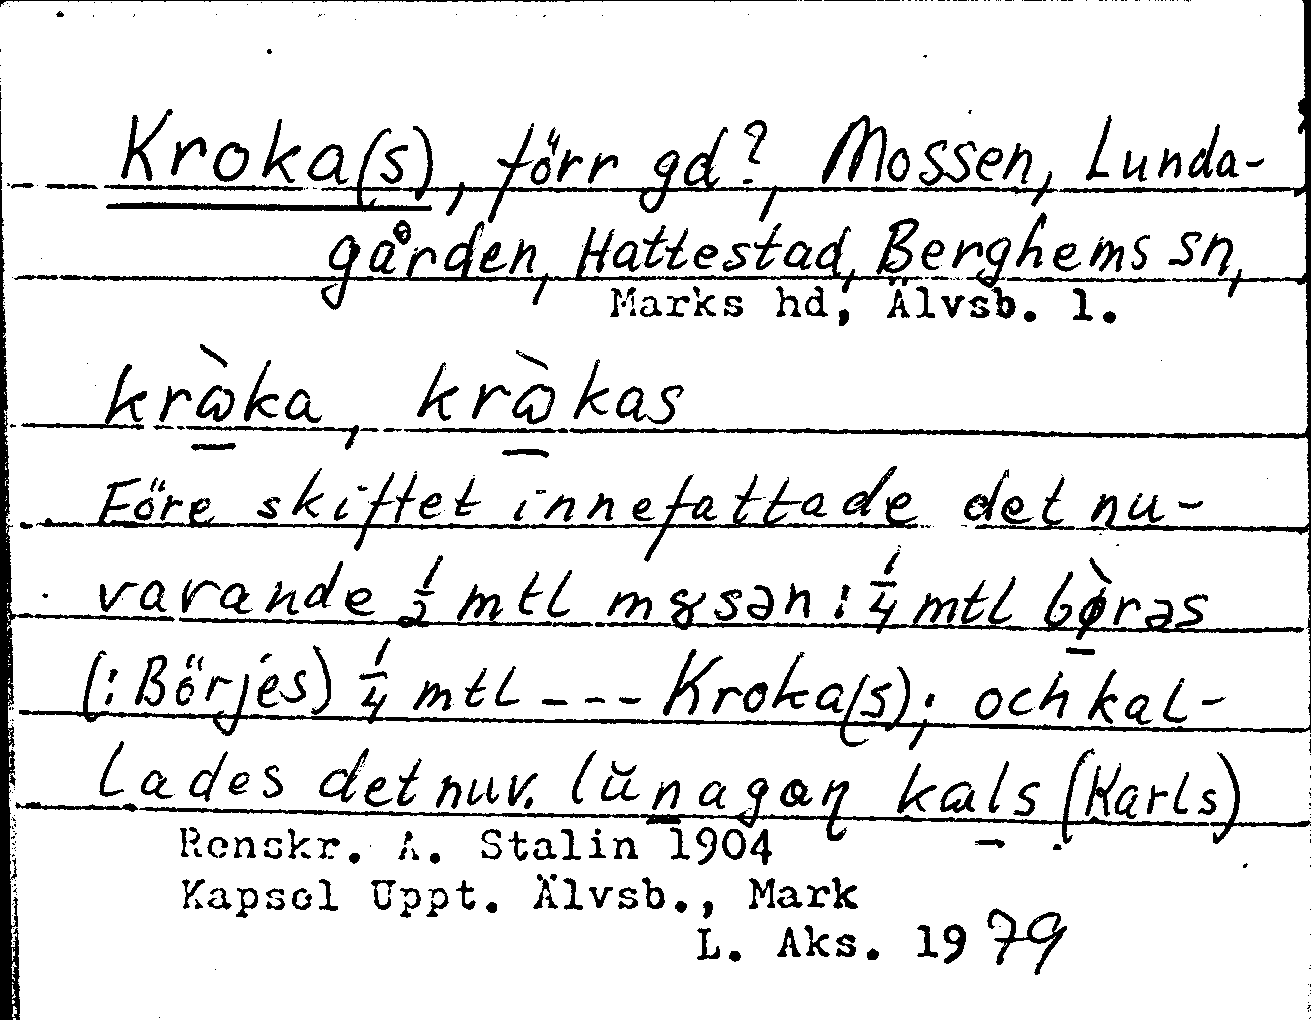 Kroka(s), förr gd?, Mossen, Lunda-
gården, Hattestad, Berghems sn,
Marks hd, Älvsb. l.
krὼka, krὼkas
Före skiftet innefattade det nu-
varande 1/2 mtl mɤsən: 1/4 mtl bø̀rəs
(: Börjés) 1/4 mtl --- Kroka(s); och kal-
lades det nuv. lŭnagaŋ kals (Karls)
Renskr. A. Stalin 1904
Kapsel Uppt. Älvsb., Mark
L. Aks. 1979